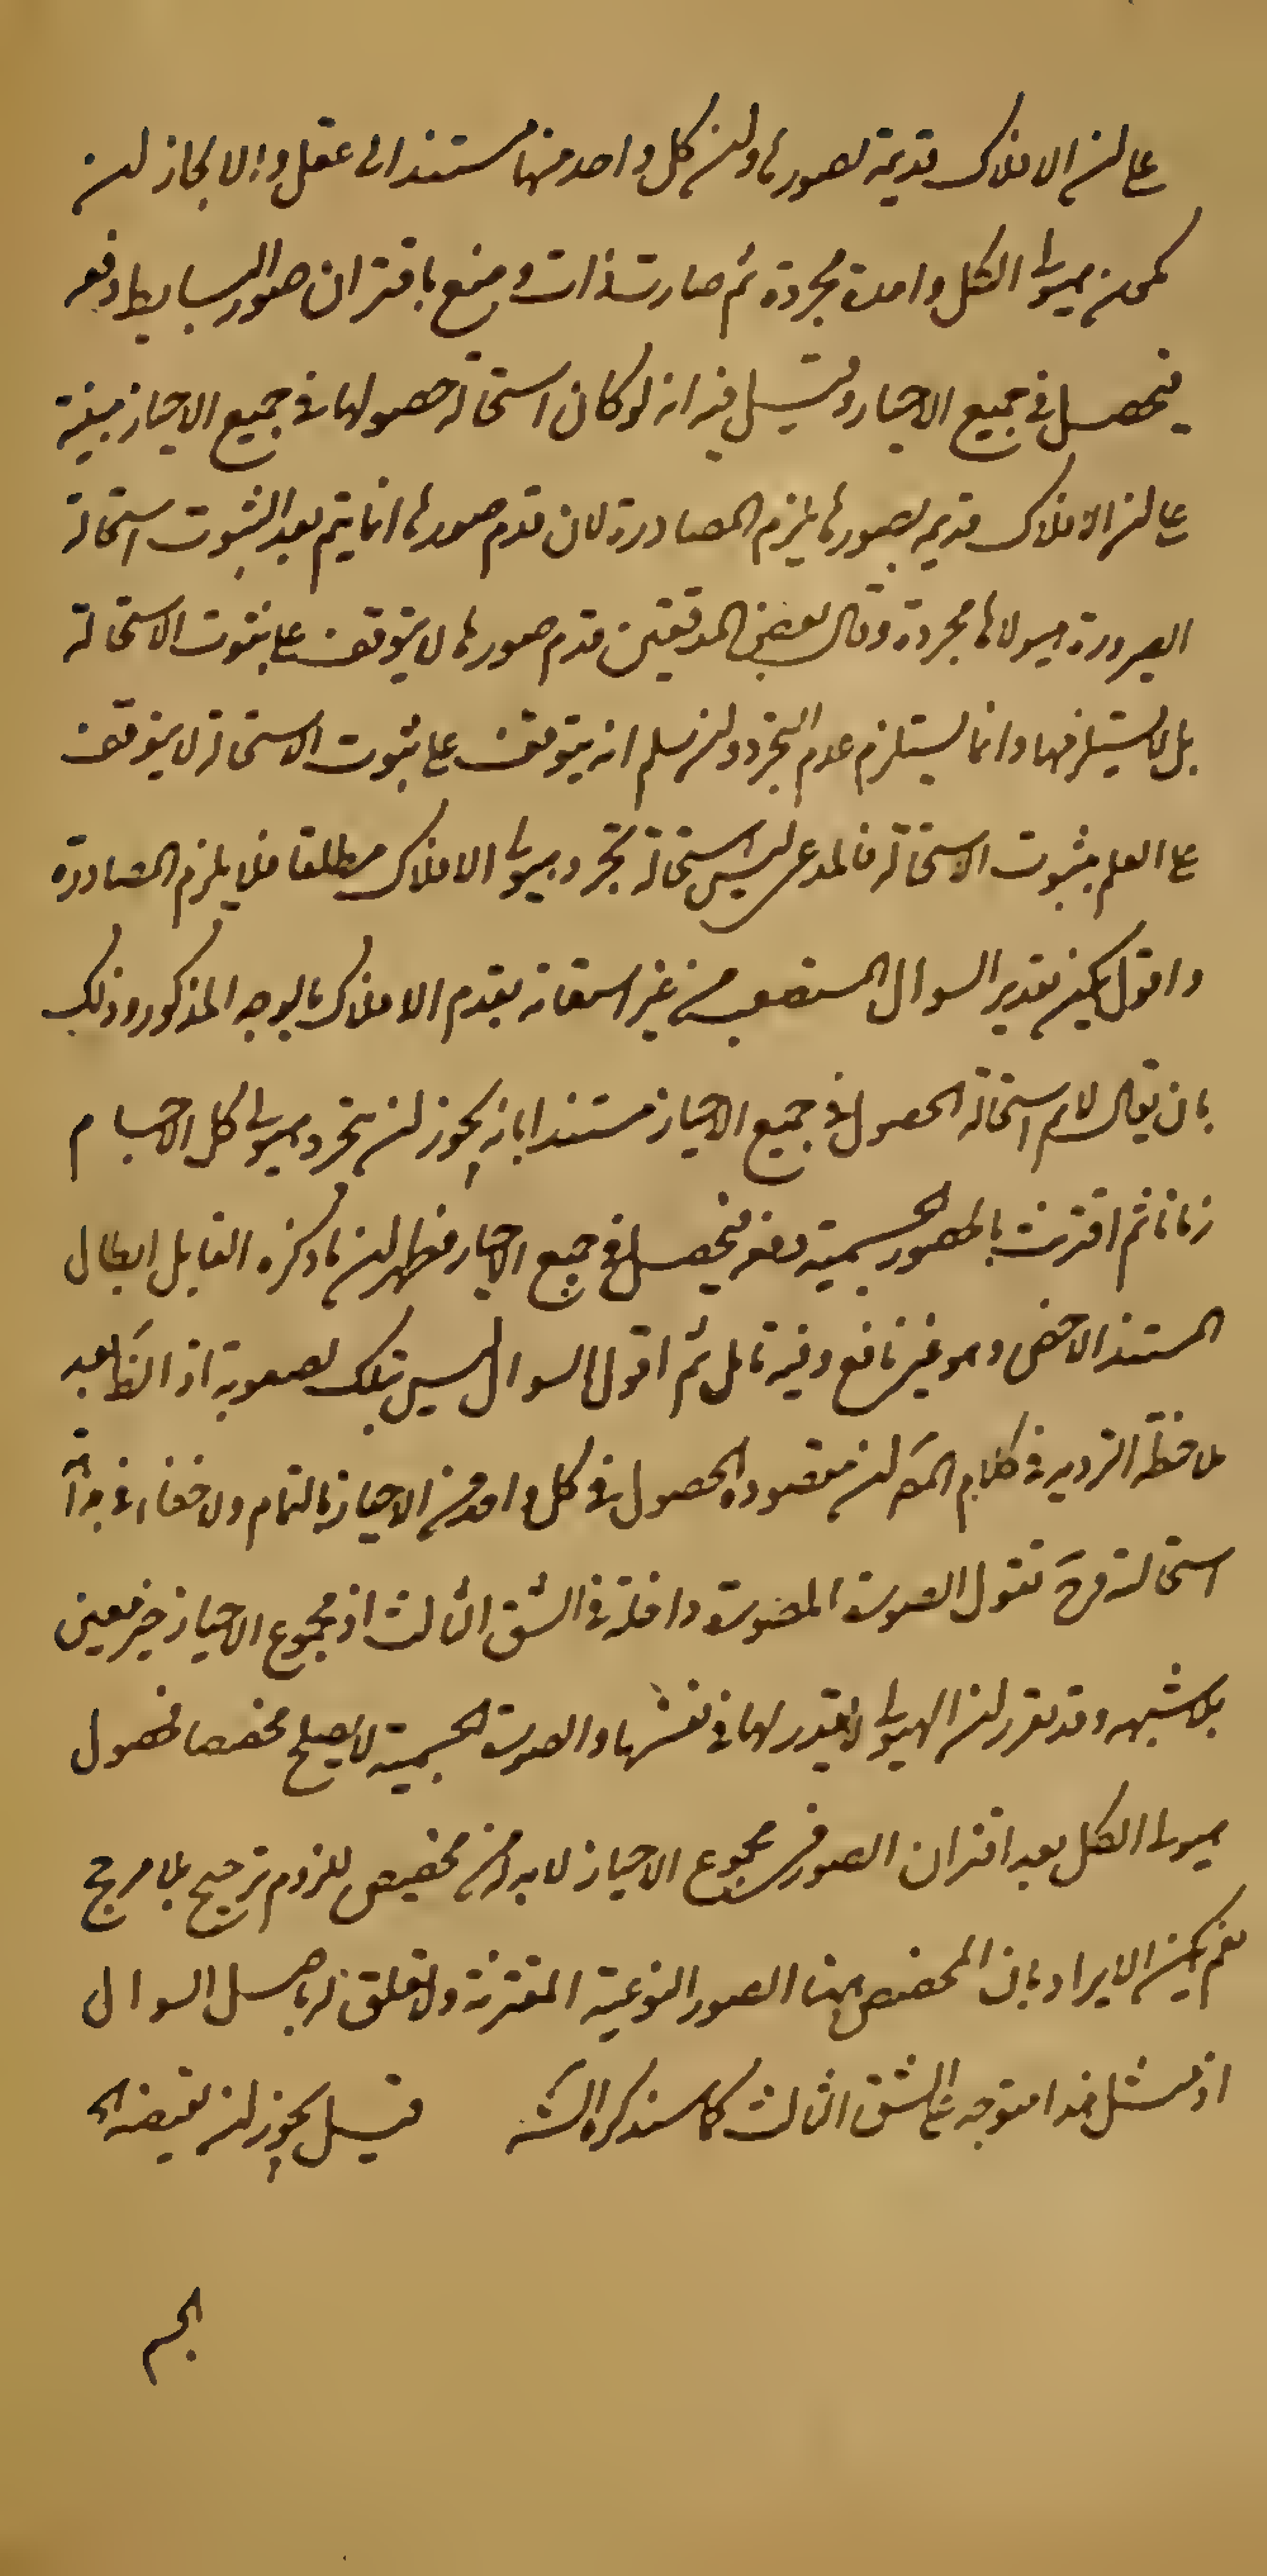 على ان الافلاك قديمة بصورها وان كل واحد منها مستند الى عقل والا لجاز ان
يكون هيولى الكل واحدة مجردة ثم صارت ذات وضع باقتران صور البسايط دفعة
فيحصل في جميع الاحياز وقيل فيه انه لو كان استحالة حصولها في جميع الاحياز مبنية
على ان الافلاك قديمة بصورها يلزم المصادرة لان قدم صورها انما يتم بعد الثبوت استحالة
الصرورة هيولاها مجردة وقال بعض المدققين قدم صورها لا يتوقف على ثبوت الاستحالة
بل لا يستلزمها وانما يستلزم عدم التجرد ولئن سلم انه يتوقف على ثبوت الاستحالة لا يتوقف
على العلم بثبوت الاستحالة فالمدعى ليس استحالة تجرد هيولى الافلاك مطلقا فلا يلزم المصادرة
واقول يمكن تقرير السوال المستصعب من غير استعانة بقدم الافلاك بالوجه المذكور وذلك
بان يقال لانم استحالة الحصول في جميع الاحياز مستندا بانه يجوز ان يتجرد هيولى كل الاجسام
زمانا ثم اقترنت بالصور الجسمية دفعة فيحصل في جميع الاحياز فظهر ان ما ذكره القايل ابطال
المستند الاخص وهو غير نافع وفيه تامل ثم اقول السوال ليس بتلك الصعوبة اذ الظ بعد
ملاحظة الترديد في كلام المص ان مقصوده الحصول في كل واحد من الاحياز بالتمام ولا خفاء في بداهة
استحالته فح نقول الصورة المفروضة داخلة في الشق الثالث اذ مجموع الاحياز حيز معين
بلا شبهه وقد تقرر ان الهيولى لا تقدر لها في نفسها والصورة الجسمية لا يصلح مخصصا فحصول
هيولى الكل بعد اقتران الصور في مجموع الاحياز لا بد له من مخصص للزوم ترجيح بلا مرجح
نعم يمكن الايراد بان المخصص هنا الصور النوعية المقترنة ولا تعلق له باصل السوال
اذ مثل هذا متوجه على الشق الثالث كما سنذكره الش قيل يجوز ان يقتضيه الخ
الجسم